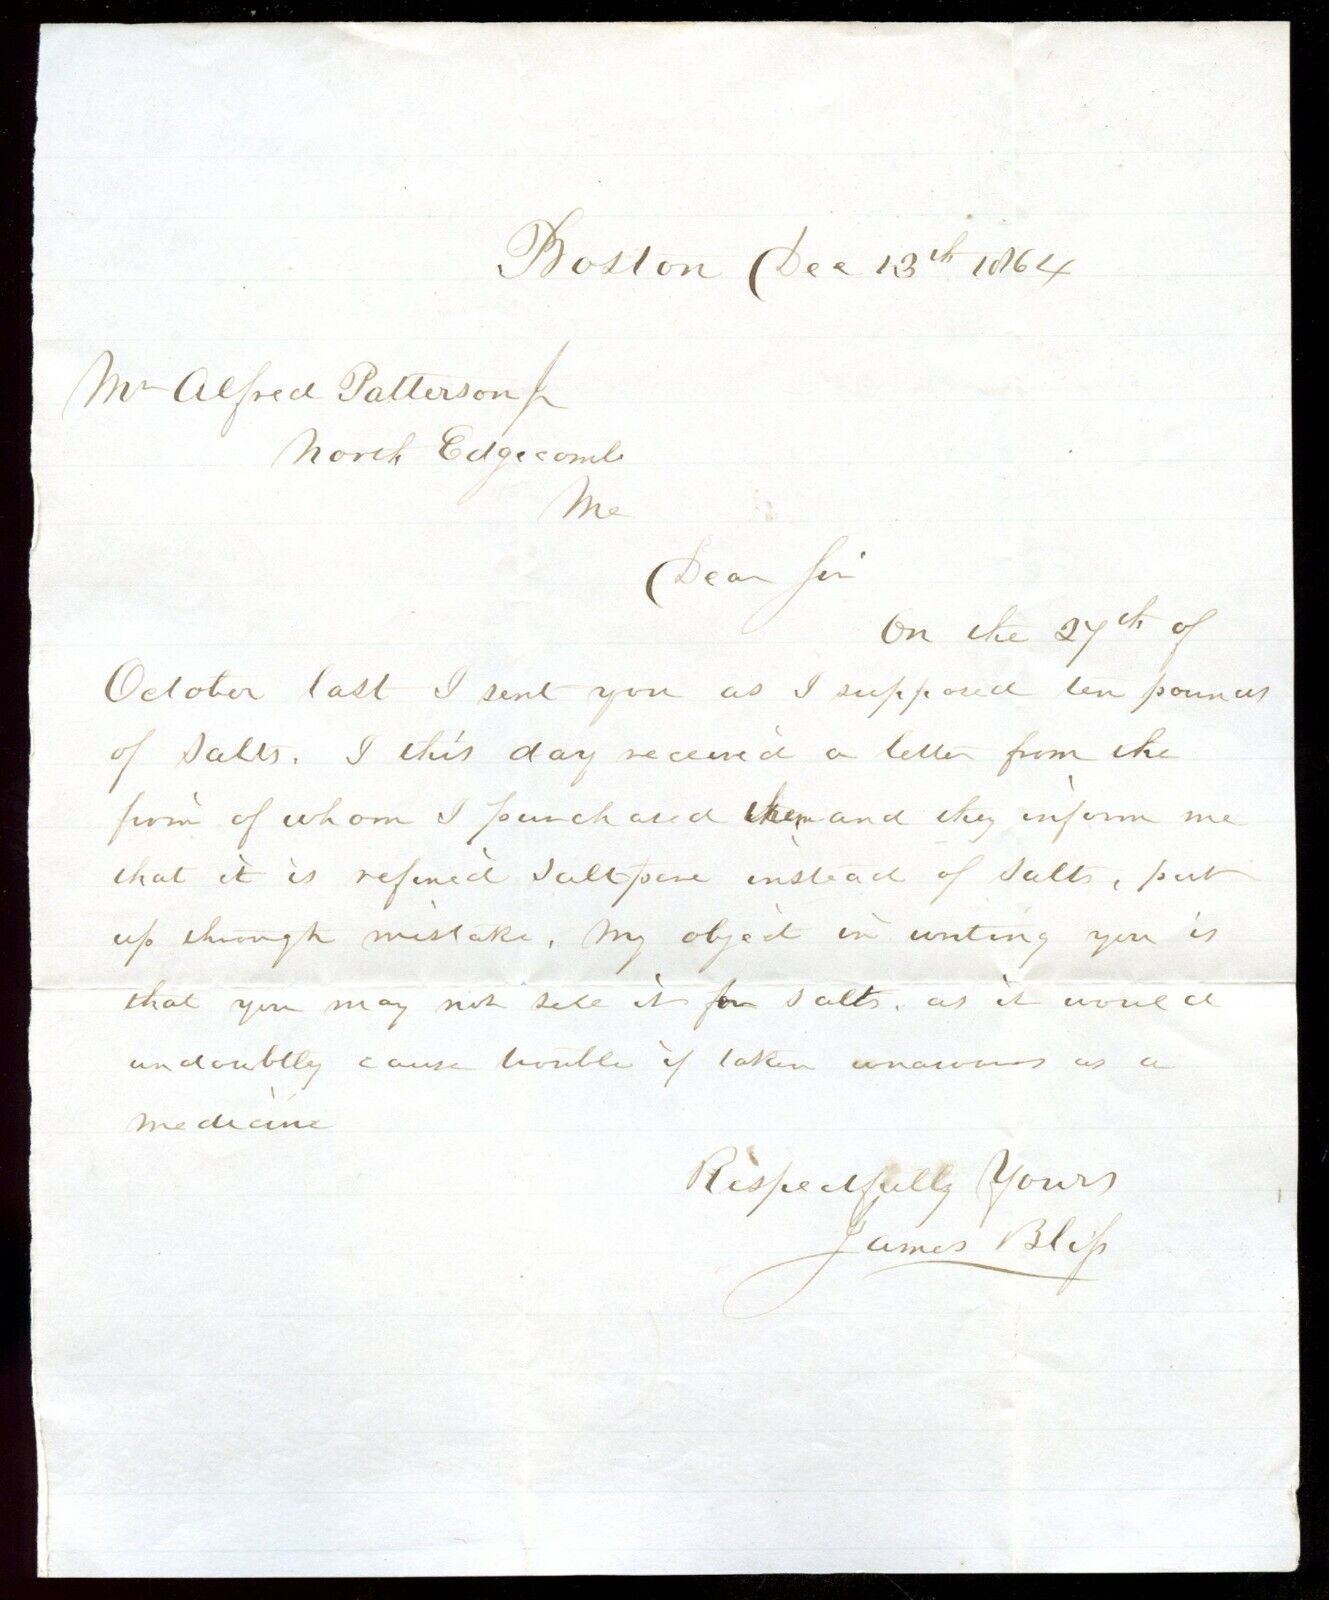 Boston Dec 13th 1864
Mr Alfred Patterson Jr
North Edgecomb
Me
Dear Sir
On the 27th of
October last I sent you as I supposed ten pounds
of Salts. I this day received a letter from the
firm of whom I purchased them and they inform me
that it is refined Saltpere instead of Salts, put
up through mistake. My object in writing you is
that you may not sell it for Salts. as it would
undoubtly cause trouble if taken unawares as a
medicine
Respectfully Yours
James Bliss